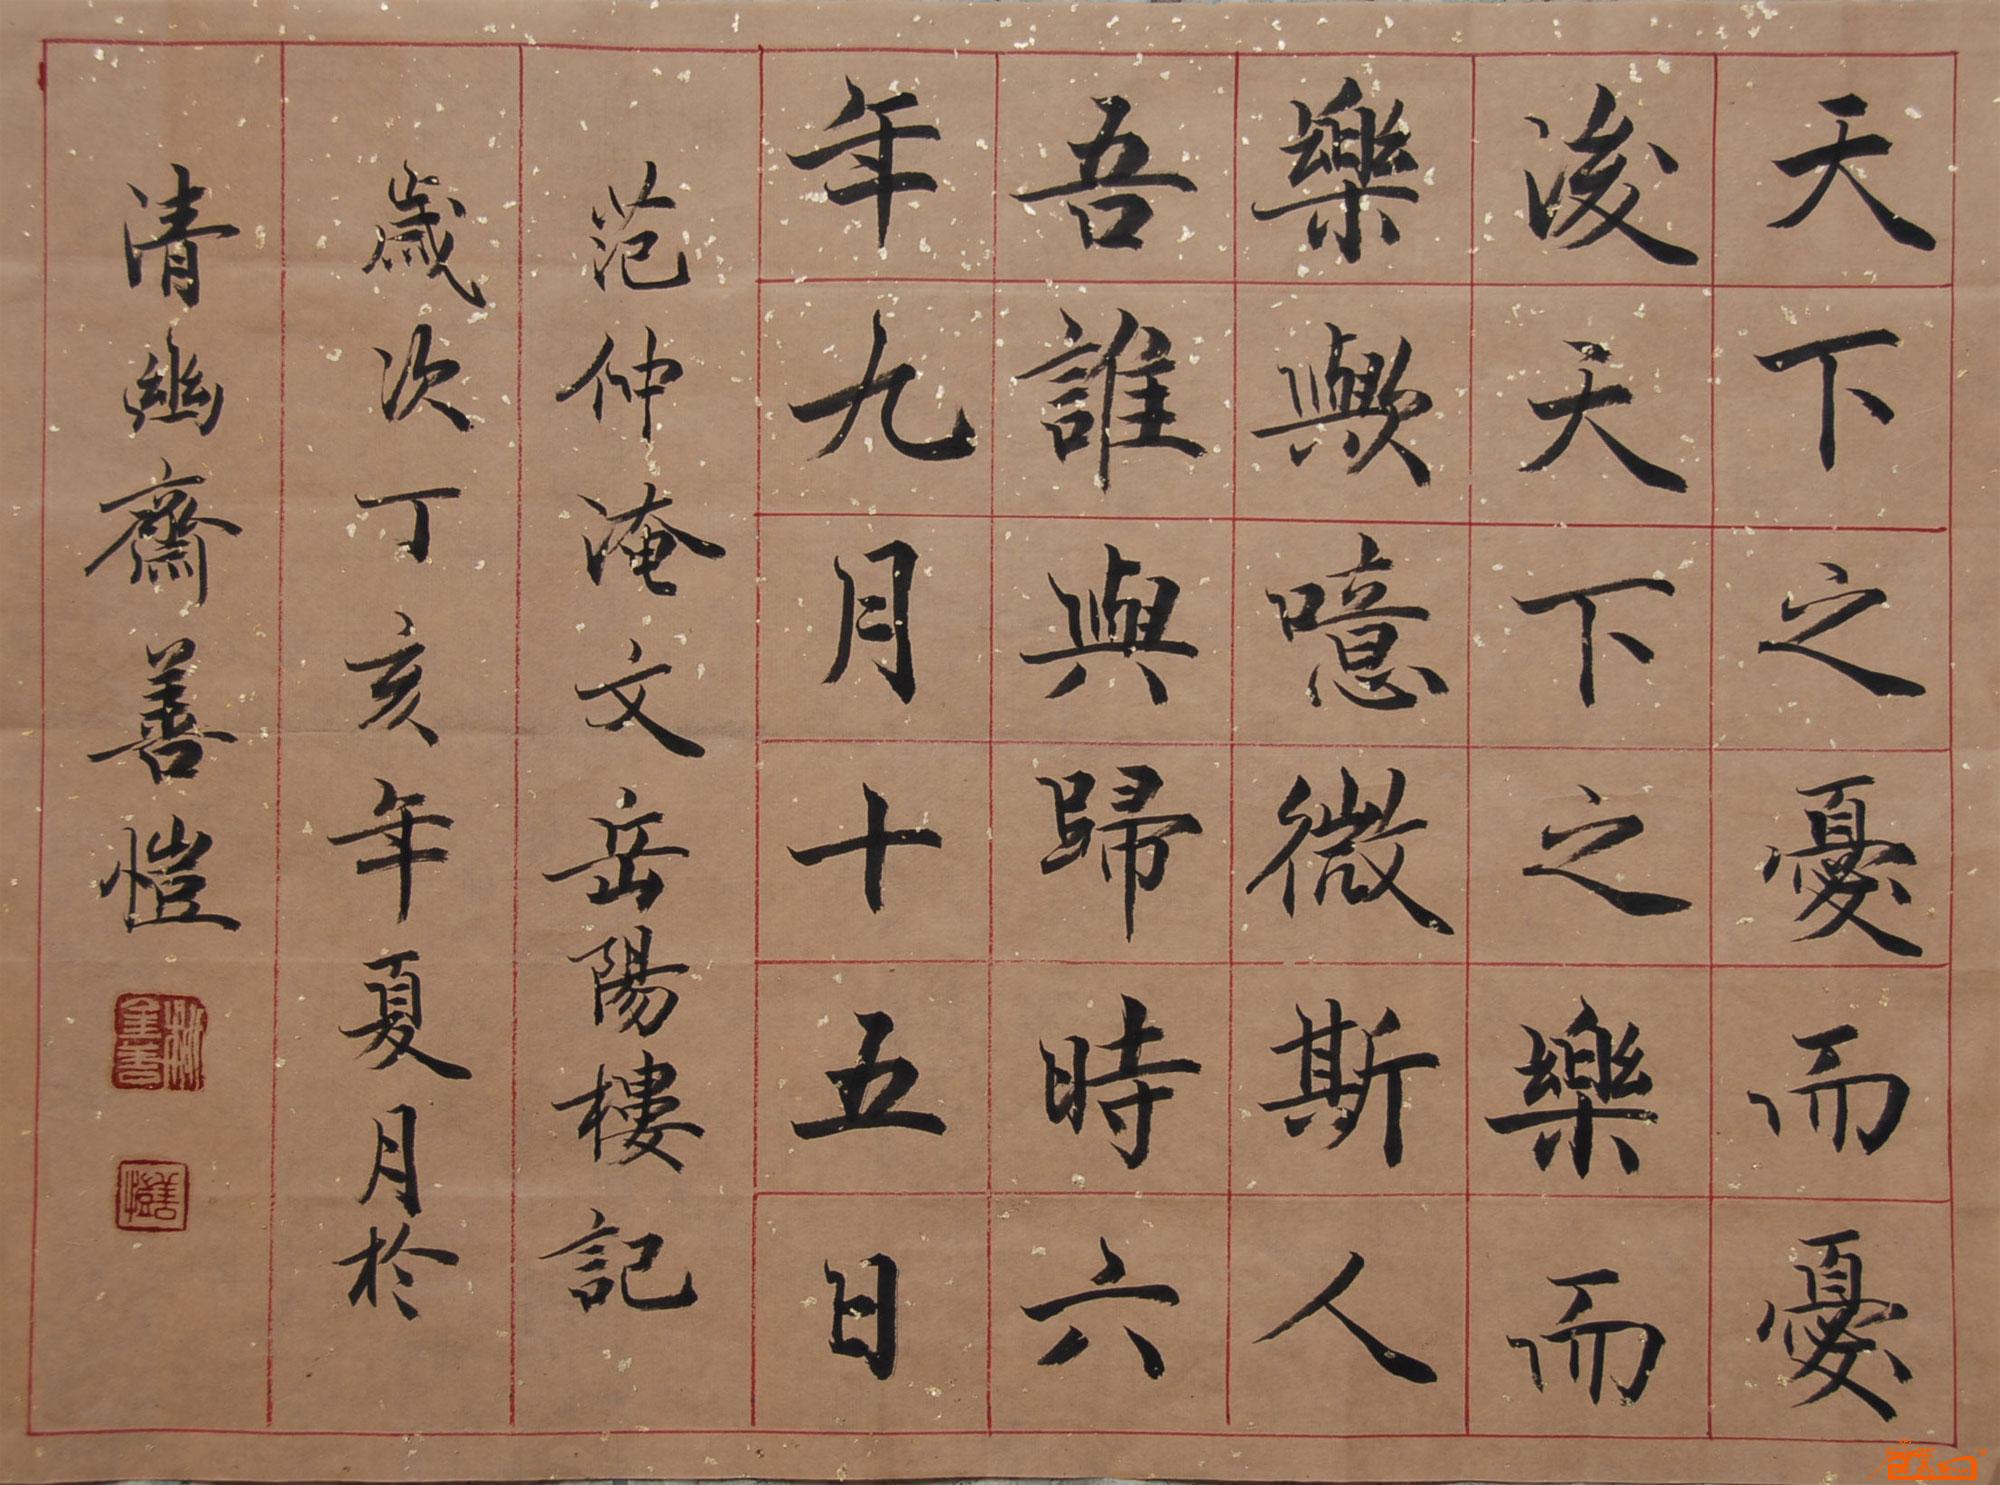 天下之憂而憂
後天下之樂而
樂歟噫微斯人
吾誰與歸時六
年九月十五日
范仲淹文岳陽樓記
歲次丁亥年夏月於
清幽齋善愷